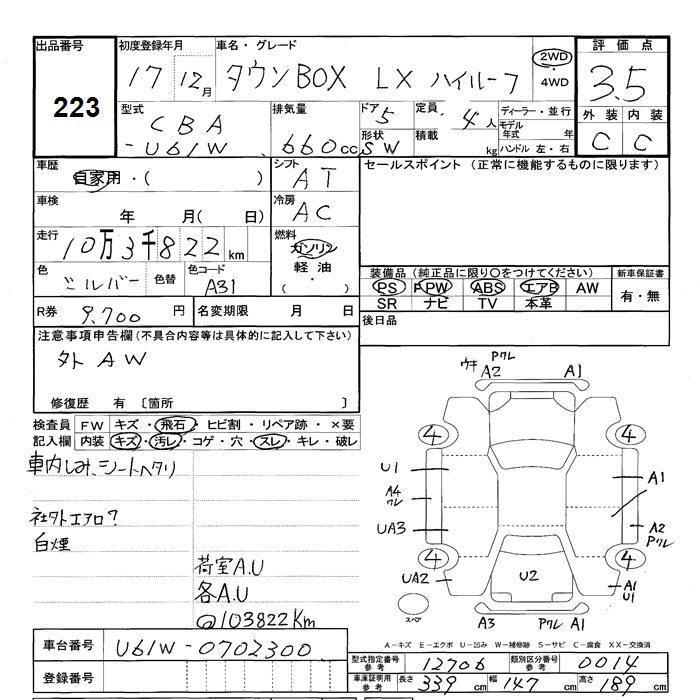 出品番号
223
初度登録年月
17 12月
車名・グレード
タウンBOX LX ハイルーフ
2WD
・
4WD
評価点
3.5
外装 内装
C C
型式
CBA
-U61W
排気量
660cc
ドア 5
形状 SW
定員 4人
積載 kg
ディーラー・並行
モデル
年式 年
ハンドル 左・右
車歴
自家用・( )
シフト
AT
セールスポイント (正常に機能するものに限ります)
車検
年 月( 日)
冷房
AC
走行
10万3千822km
燃料
ガソリン
軽油
( ・ )
色
シルバー
色替
色コード
A31
装備品(純正品に限り○をつけてください)
PS PW ABS エアB AW
SR ナビ TV 本革
新車保証書
有・無
R券 9,700円
名変期限 月 日
後日品
注意事項申告欄(不具合内容等は具体的に記入して下さい)
外AW
修復歴 有 〔箇所 〕
検査員
記入欄
FW キズ・飛石・ヒビ割・リペア跡・×要
内装 キズ・汚レ・コゲ・穴・スレ・キレ・破レ
車内しみ、シートヘタリ
社外エアロ?
白煙
荷室A.U
各A.U
@103822Km
ウキ Pクレ
A2 A1
4 4
U1
A1
A4
クレ
UA3
A2
Pクレ
4 4
UA2
U2
A1
U1
スペア
A3 Pクレ A1
A-キズ E-エクボ U-凹み W-補修跡 S-サビ C-腐食 XX-交換済
車台番号 U61W-0702300
登録番号
型式指定番号
参考
12706
類別区分番号
参考
0014
車庫証明用
参考
長さ 339cm 幅 147cm 高さ 189cm